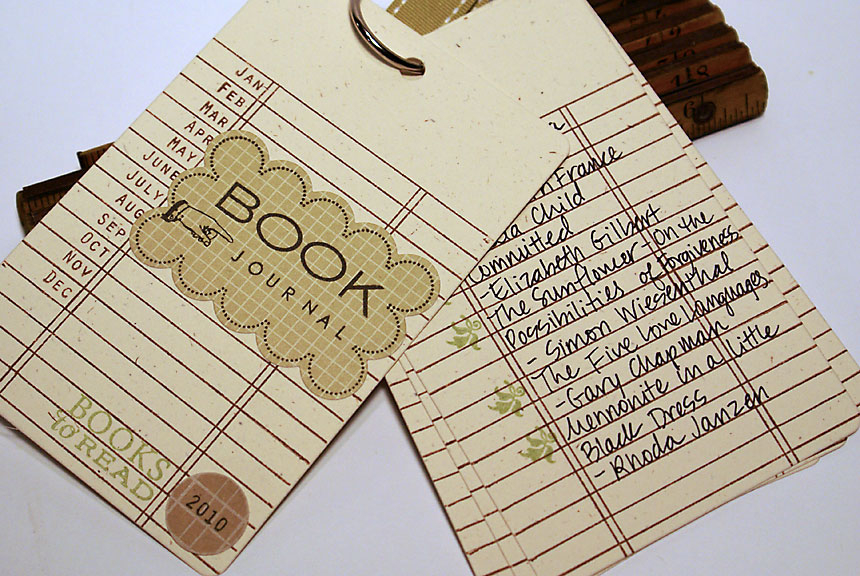 JAN
FEB
MAR
APR
MAY
JUNE
JULY
AUG
SEP
OCT
NOV
DEC
BOOK
JOURNAL
BOOKS
to READ
2010
France
Child
Committed
-Elizabeth Gilbert
The Sunflower- On the
Possibilities of Forgiveness
- Simon Wiesenthal
The Five Love Languages
-Gary Chapman
Mennonite in a Little
Black Dress
- Rhoda Janzen
6